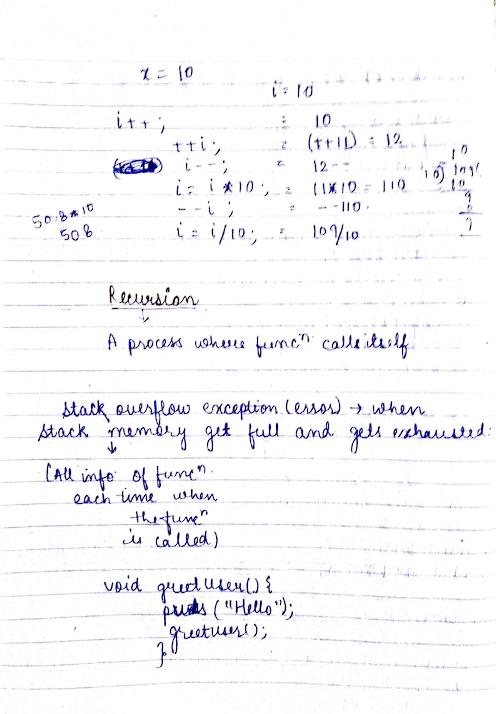 x = 10
i = 10
i++ ; = 10
++i ; = (++11) = 12
i-- ; = 12--
i = i*10 ; = 11*10 = 110
--i ; = --110.
i = i/10 ; = 109/10
50.8*10
508
10
10) 109(
10
9
Recursion
A process where funcⁿ calls itself
Stack overflow exception (error) → when
stack memory get full and gets exhausted.
(All info of funcⁿ.
each time when
the funcⁿ
is called)
void greetUser() {
("Hello");
greetuser();
}